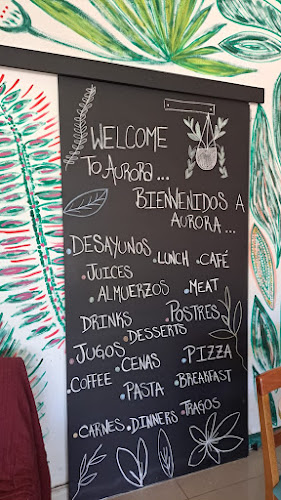 WELCOME
TO AURORA...
BIENVENIDOS A
AURORA...
• DESAYUNOS • LUNCH • CAFÉ
• JUICES
• ALMUERZOS • MEAT
DRINKS • POSTRES
• DESSERTS
• JUGOS • CENAS • PIZZA
• COFFEE • PASTA • BREAKFAST
• CARNES • DINNERS • TRAGOS